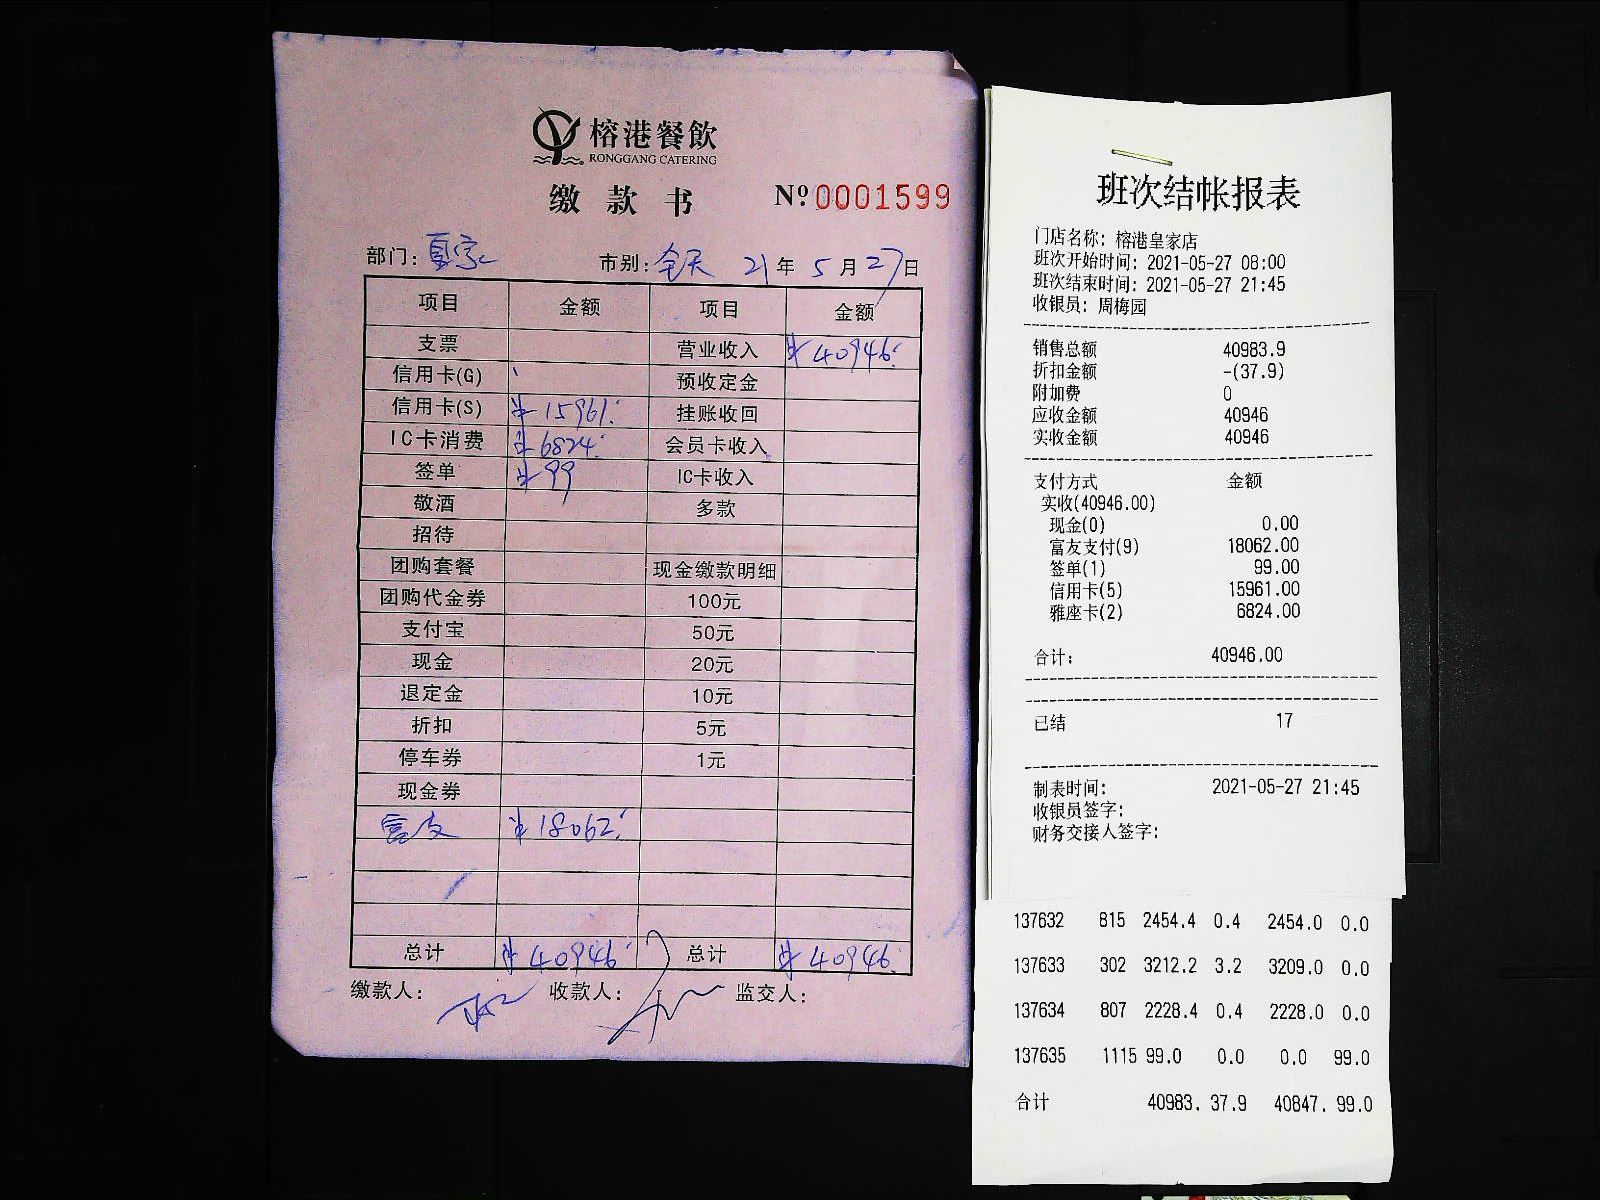 榕港餐飲
RONGGANG CATERING
缴款书 Nº 0001599
部门: 皇家 市别: 全天 21年5月27日
项目 金额 项目 金额
支票 营业收入 ¥40946.
信用卡(G) 预收定金
信用卡(S) ¥15961. 挂账收回
IC卡消费 ¥6824. 会员卡收入
签单 ¥99 IC卡收入
敬酒 多款
招待
团购套餐 现金缴款明细
团购代金券 100元
支付宝 50元
现金 20元
退定金 10元
折扣 5元
停车券 1元
现金券
富友 ¥18062.
总计 ¥40946. 总计 ¥40946.
缴款人: 收款人: 监交人:
班次结帐报表
门店名称: 榕港皇家店
班次开始时间: 2021-05-27 08:00
班次结束时间: 2021-05-27 21:45
收银员: 周梅园
销售总额 40983.9
折扣金额 -(37.9)
附加费 0
应收金额 40946
实收金额 40946
支付方式 金额
实收(40946.00)
现金(0) 0.00
富友支付(9) 18062.00
签单(1) 99.00
信用卡(5) 15961.00
雅座卡(2) 6824.00
合计: 40946.00
已结 17
制表时间: 2021-05-27 21:45
收银员签字:
财务交接人签字:
137632 815 2454.4 0.4 2454.0 0.0
137633 302 3212.2 3.2 3209.0 0.0
137634 807 2228.4 0.4 2228.0 0.0
137635 1115 99.0 0.0 0.0 99.0
合计 40983. 37.9 40847. 99.0